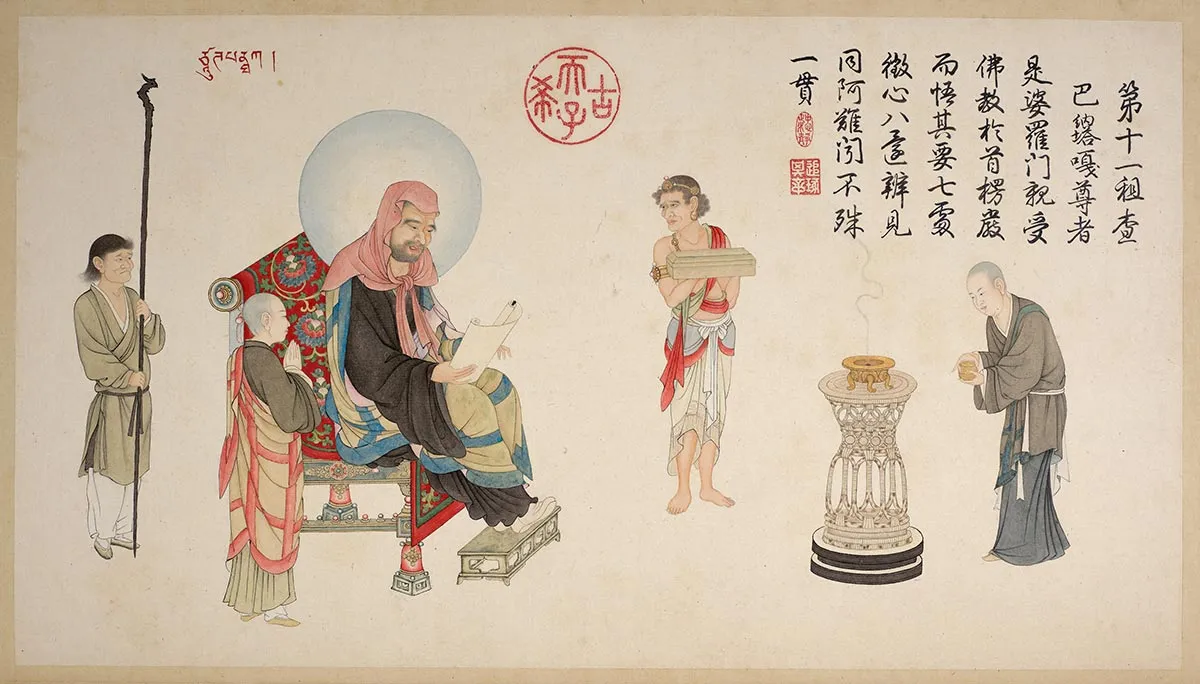 古希天子
第十一租查
巴嘎尊者
是婆羅門親受
佛教於首楞嚴
而悟其要七處
徵心八還辨見
同阿難聞不殊
一貫